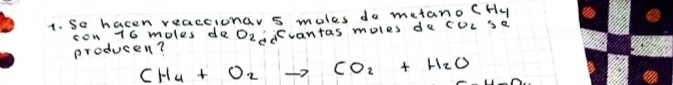 1. Se hacen reaccionar 5 moles de metano CH4
con 16 moles de O2 ¿Cuantas moles de CO2 se
producen?
CH4 + O2 → CO2 + H2O